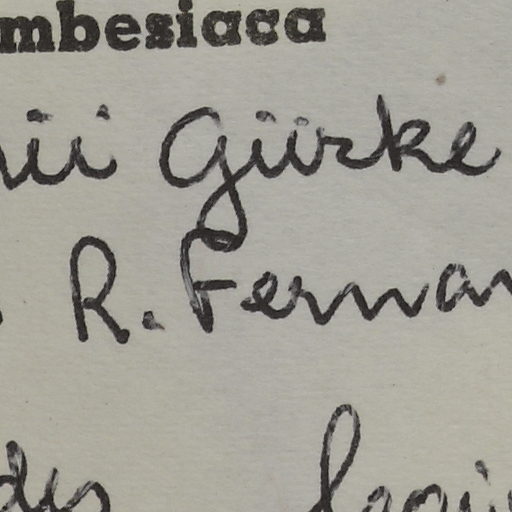 mbesiaca
ii Gürke
R. Fernan
des